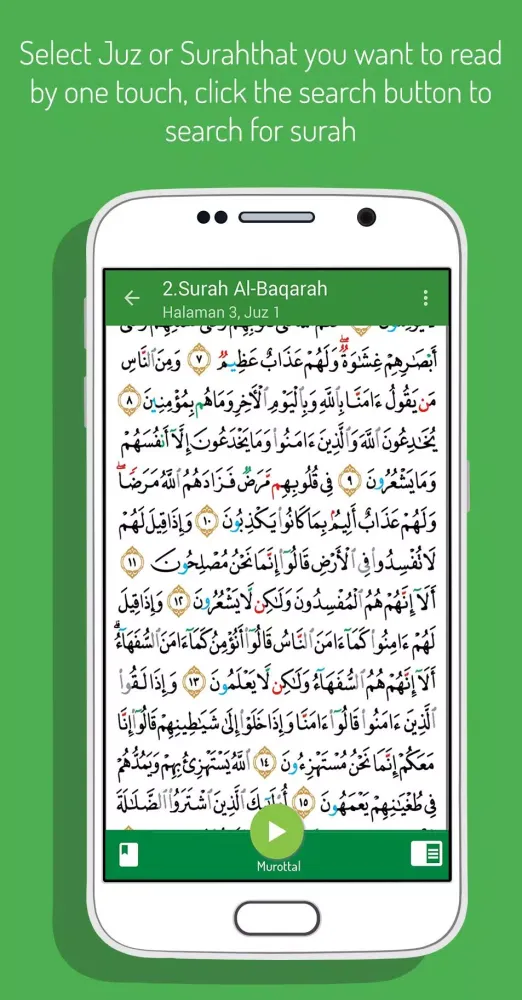 Select Juz or Surahthat you want to read
by one touch, click the search button to
search for surah
2.Surah Al-Baqarah
Halaman 3, Juz 1
أَبْصَٰرِهِمْ غِشَٰوَةٌ ۖ وَلَهُمْ عَذَابٌ عَظِيمٌ ٧ وَمِنَ ٱلنَّاسِ
مَن يَقُولُ ءَامَنَّا بِٱللَّهِ وَبِٱلْيَوْمِ ٱلْأَخِرِ وَمَا هُم بِمُؤْمِنِينَ ٨
يُخَٰدِعُونَ ٱللَّهَ وَٱلَّذِينَ ءَامَنُوا۟ وَمَا يَخْدَعُونَ إِلَّآ أَنفُسَهُمْ
وَمَا يَشْعُرُونَ ٩ فِى قُلُوبِهِم مَّرَضٌ فَزَادَهُمُ ٱللَّهُ مَرَضًا ۖ
وَلَهُمْ عَذَابٌ أَلِيمٌۢ بِمَا كَانُوا۟ يَكْذِبُونَ ١٠ وَإِذَا قِيلَ لَهُمْ
لَا تُفْسِدُوا۟ فِى ٱلْأَرْضِ قَالُوٓا۟ إِنَّمَا نَحْنُ مُصْلِحُونَ ١١
أَلَآ إِنَّهُمْ هُمُ ٱلْمُفْسِدُونَ وَلَٰكِن لَّا يَشْعُرُونَ ١٢ وَإِذَا قِيلَ
لَهُمْ ءَامِنُوا۟ كَمَآ ءَامَنَ ٱلنَّاسُ قَالُوٓا۟ أَنُؤْمِنُ كَمَآ ءَامَنَ ٱلسُّفَهَآءُ ۗ
أَلَآ إِنَّهُمْ هُمُ ٱلسُّفَهَآءُ وَلَٰكِن لَّا يَعْلَمُونَ ١٣ وَإِذَا لَقُوا۟
ٱلَّذِينَ ءَامَنُوا۟ قَالُوٓا۟ ءَامَنَّا وَإِذَا خَلَوْا۟ إِلَىٰ شَيَٰطِينِهِمْ قَالُوٓا۟ إِنَّا
مَعَكُمْ إِنَّمَا نَحْنُ مُسْتَهْزِءُونَ ١٤ ٱللَّهُ يَسْتَهْزِئُ بِهِمْ وَيَمُدُّهُمْ
فِى طُغْيَٰنِهِمْ يَعْمَهُونَ ١٥ أُو۟لَٰٓئِكَ ٱلَّذِينَ ٱشْتَرَوُا۟ ٱلضَّلَٰلَةَ
Murottal